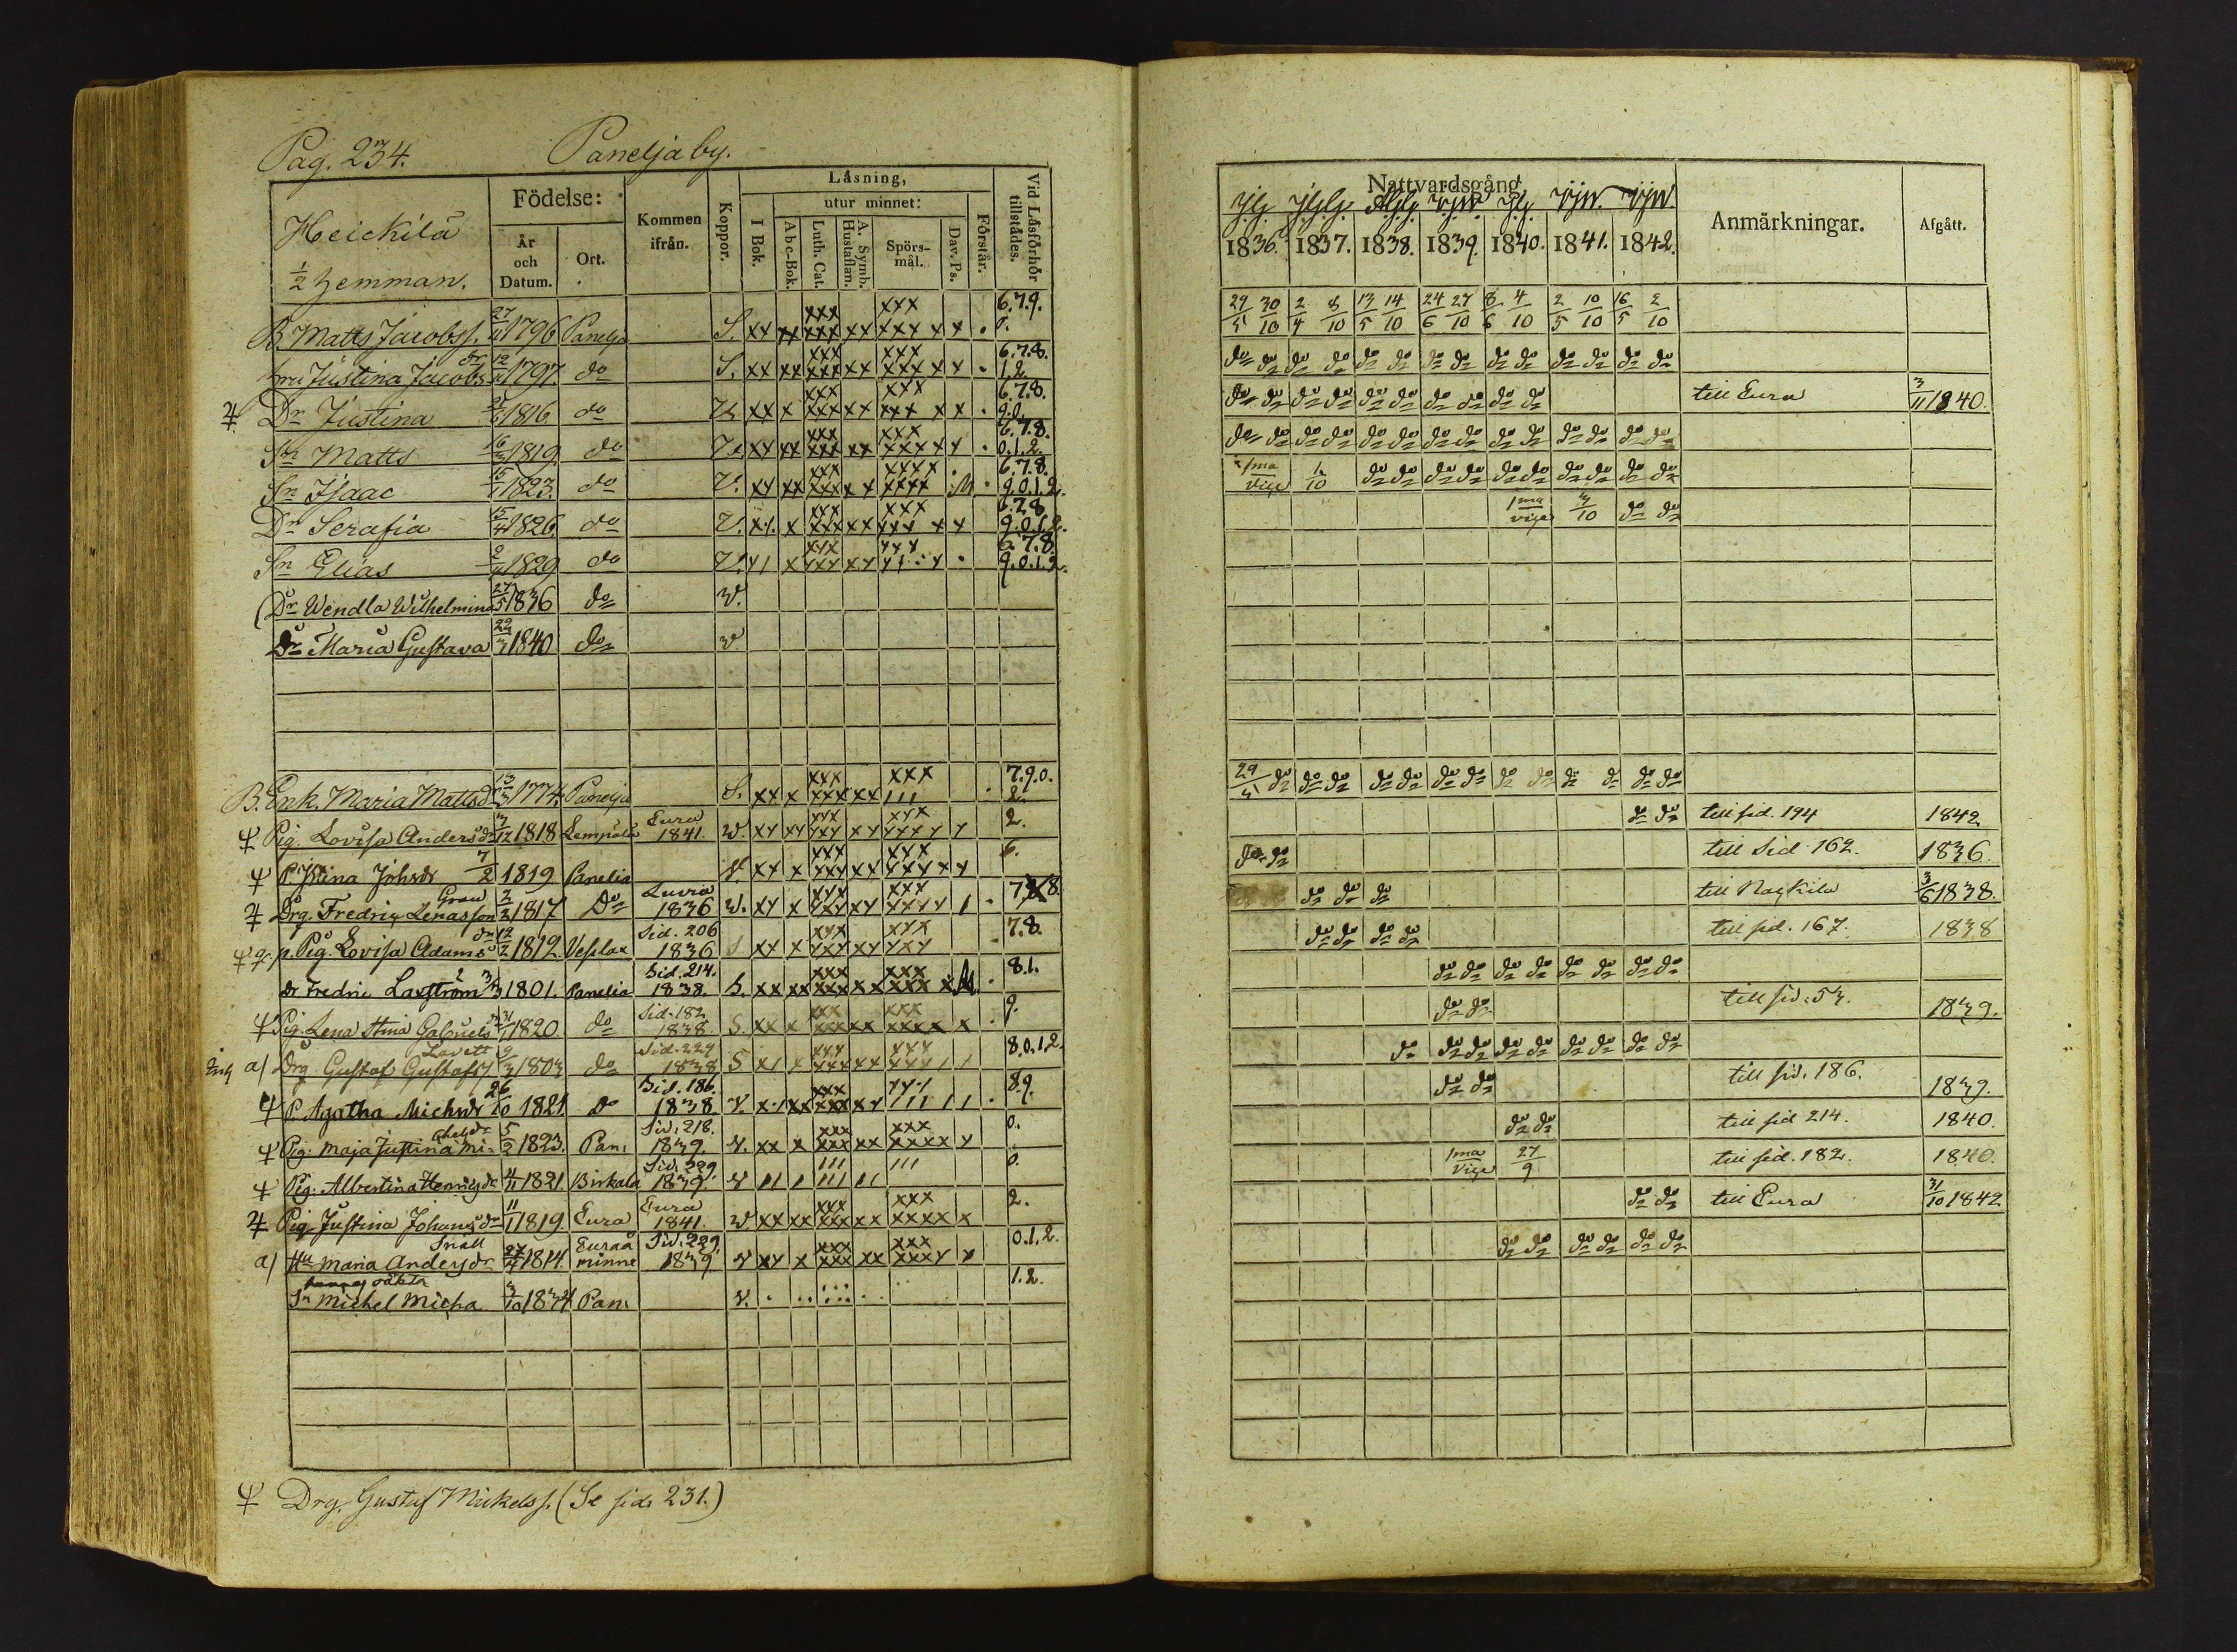 Pag. 234. Paneljaby.
Heickilä
1/2 hemman.
Födelse:
År och Datum.
Ort.
Kommen ifrån.
Koppor.
Läsning,
I Bok.
utur minnet:
Abc-Bok.
Luth. Cat.
A. Symb. Hustaflan.
Spörsmål.
Dav. Ps.
Förstår.
Vid Läsförhör tillstädes.
B. Matts Jacobss. 27/11 1796 Panelja S. xx xx xxx xxx xx xxx xxx x x . 6.7.9. 0.
hru Justina Jacobs dr 12/ 1797. do S. xx xx xxx xxx xx xxx xxx x x . 6.7.8. 1.2.
Dr Justina 1816. do xx x xxx xxx xx xxx xxx x x . 6.7.8. 9.0.
Sn Matts 16/ 1819. do xx xx xxx xxx xx xxx xxx x x . 6.7.8. 0.1.2.
Sn Isaac 1823. do V. xx xx xxx xxx xx xxxx xxxx . 6.7.8. 9.0.1.2.
Dr Serafia 5/4 1826. do V. x x xxx xxx xx xxx xxx x x 6.7.8 9.0.1.2.
Sn Elias 1829 do V. x xxx xxx xx xxx . 6.7.8. 9.0.1.2.
Dr Wendla Wilhelmina 27/5 1836 do w.
Dr Maria Gustava 22/3 1840 do w
B. Enk. Maria Mattsd 13/3 1774. Panelja S. xx x xxx xxx xx xxx 111 . 7.9.0. 2.
Pig. Lovisa Anders dr 3/12 1818 Lempälä Eura 1841. W. xx xx xxx xxx xx xxx xxx x x 2.
P. Stina Johsdr 7/2 1819 Panelia V. xx x xxx xxx xx xxx xxx x x 6.
Drg. Fredric Lenasson Gran 2/2 1817 Do Luvia 1836 W. xx x xxx xxx xx xxx xxxx 1 . 7 8
Pig. Lovisa Adams dr 12/2 1812. Vesilax Sid. 206 1836 S xx x xxx xxx xx xxx xxx . 7.8.
dr Fredric Laxström 3/3 1801. Panelia Sid. 214. 1838. S. xx xx xxx xxx xx xxx xxx . 8.1.
Pig. Lena Stina Gabriels dr 31/ 1820. do Sid. 182 1838 S. xx x xxx xxx xx xxx xxxx x . 9.
Enk a) Drg. Gustaf Gustafss Lavett 9/3 1803 do Sid. 229 1838 S x1 x xxx xxx xx xxx xxx 1 1 8.0.1.2.
P. Agatha Michsdr 26/10 1821 do Sid. 186. 1838 V. xxx xxx xx 111 1 1 . 8.9.
Pig. Maja Justina Mi- chelsdr 5/2 1823. Pan. Sid. 218. 1839. V. xx x xxx xxx xx xxx xxxx x 0.
Pig. Albertina Henrigsdr 4/11 1821. Birkala Sid. 229. 1839. V 11 1 111 111 11 111 0.
Pig. Justina Johansdr 11/1 1819. Eura Eura 1841. W xx xx xxx xxx xx xxx xxxx x 2.
a) Hu Maria Andersdr Snäll 27/ 1814. Euraåminne Sid. 229. 1839. V xx x xxx xxx xx xxx xxxx x 0.1.2.
Sn Michel Micha 3/10 1834 Pan. V. 1.2.
Drg. Gustaf Mickelss. (Se sid. 231.)
Nattvardsgång
1836. 1837. 1838. 1839. 1840. 1841. 1842.
Anmärkningar.
Afgått.
29/5 30/10 2/4 8/10 13/5 14/10 24/6 27/10 8/6 4/10 2/5 10/10 16/5 2/10
do do do do do do do do do do do do do do
do do do do do do do do do do till Eura 3/11 1840.
do do do do do do do do do do do do do do
1ma vige 1/10 do do do do do do do do do do
1ma vige 3/10 do do
29/5 do do do do do do do do do do do do do
do do till sid. 194 1842
do do till Sid 162. 1836.
do do do till Naykila 3/6 1838.
do do do do till sid. 167. 1838
do do do do do do do do
do do till sid. 57. 1839.
do do do do do do do do do
do do till sid. 186. 1839.
do do till sid 214. 1840.
1ma vige 27/9 till sid. 182. 1840.
do do till Eura 31/10 1842
do do do do do do